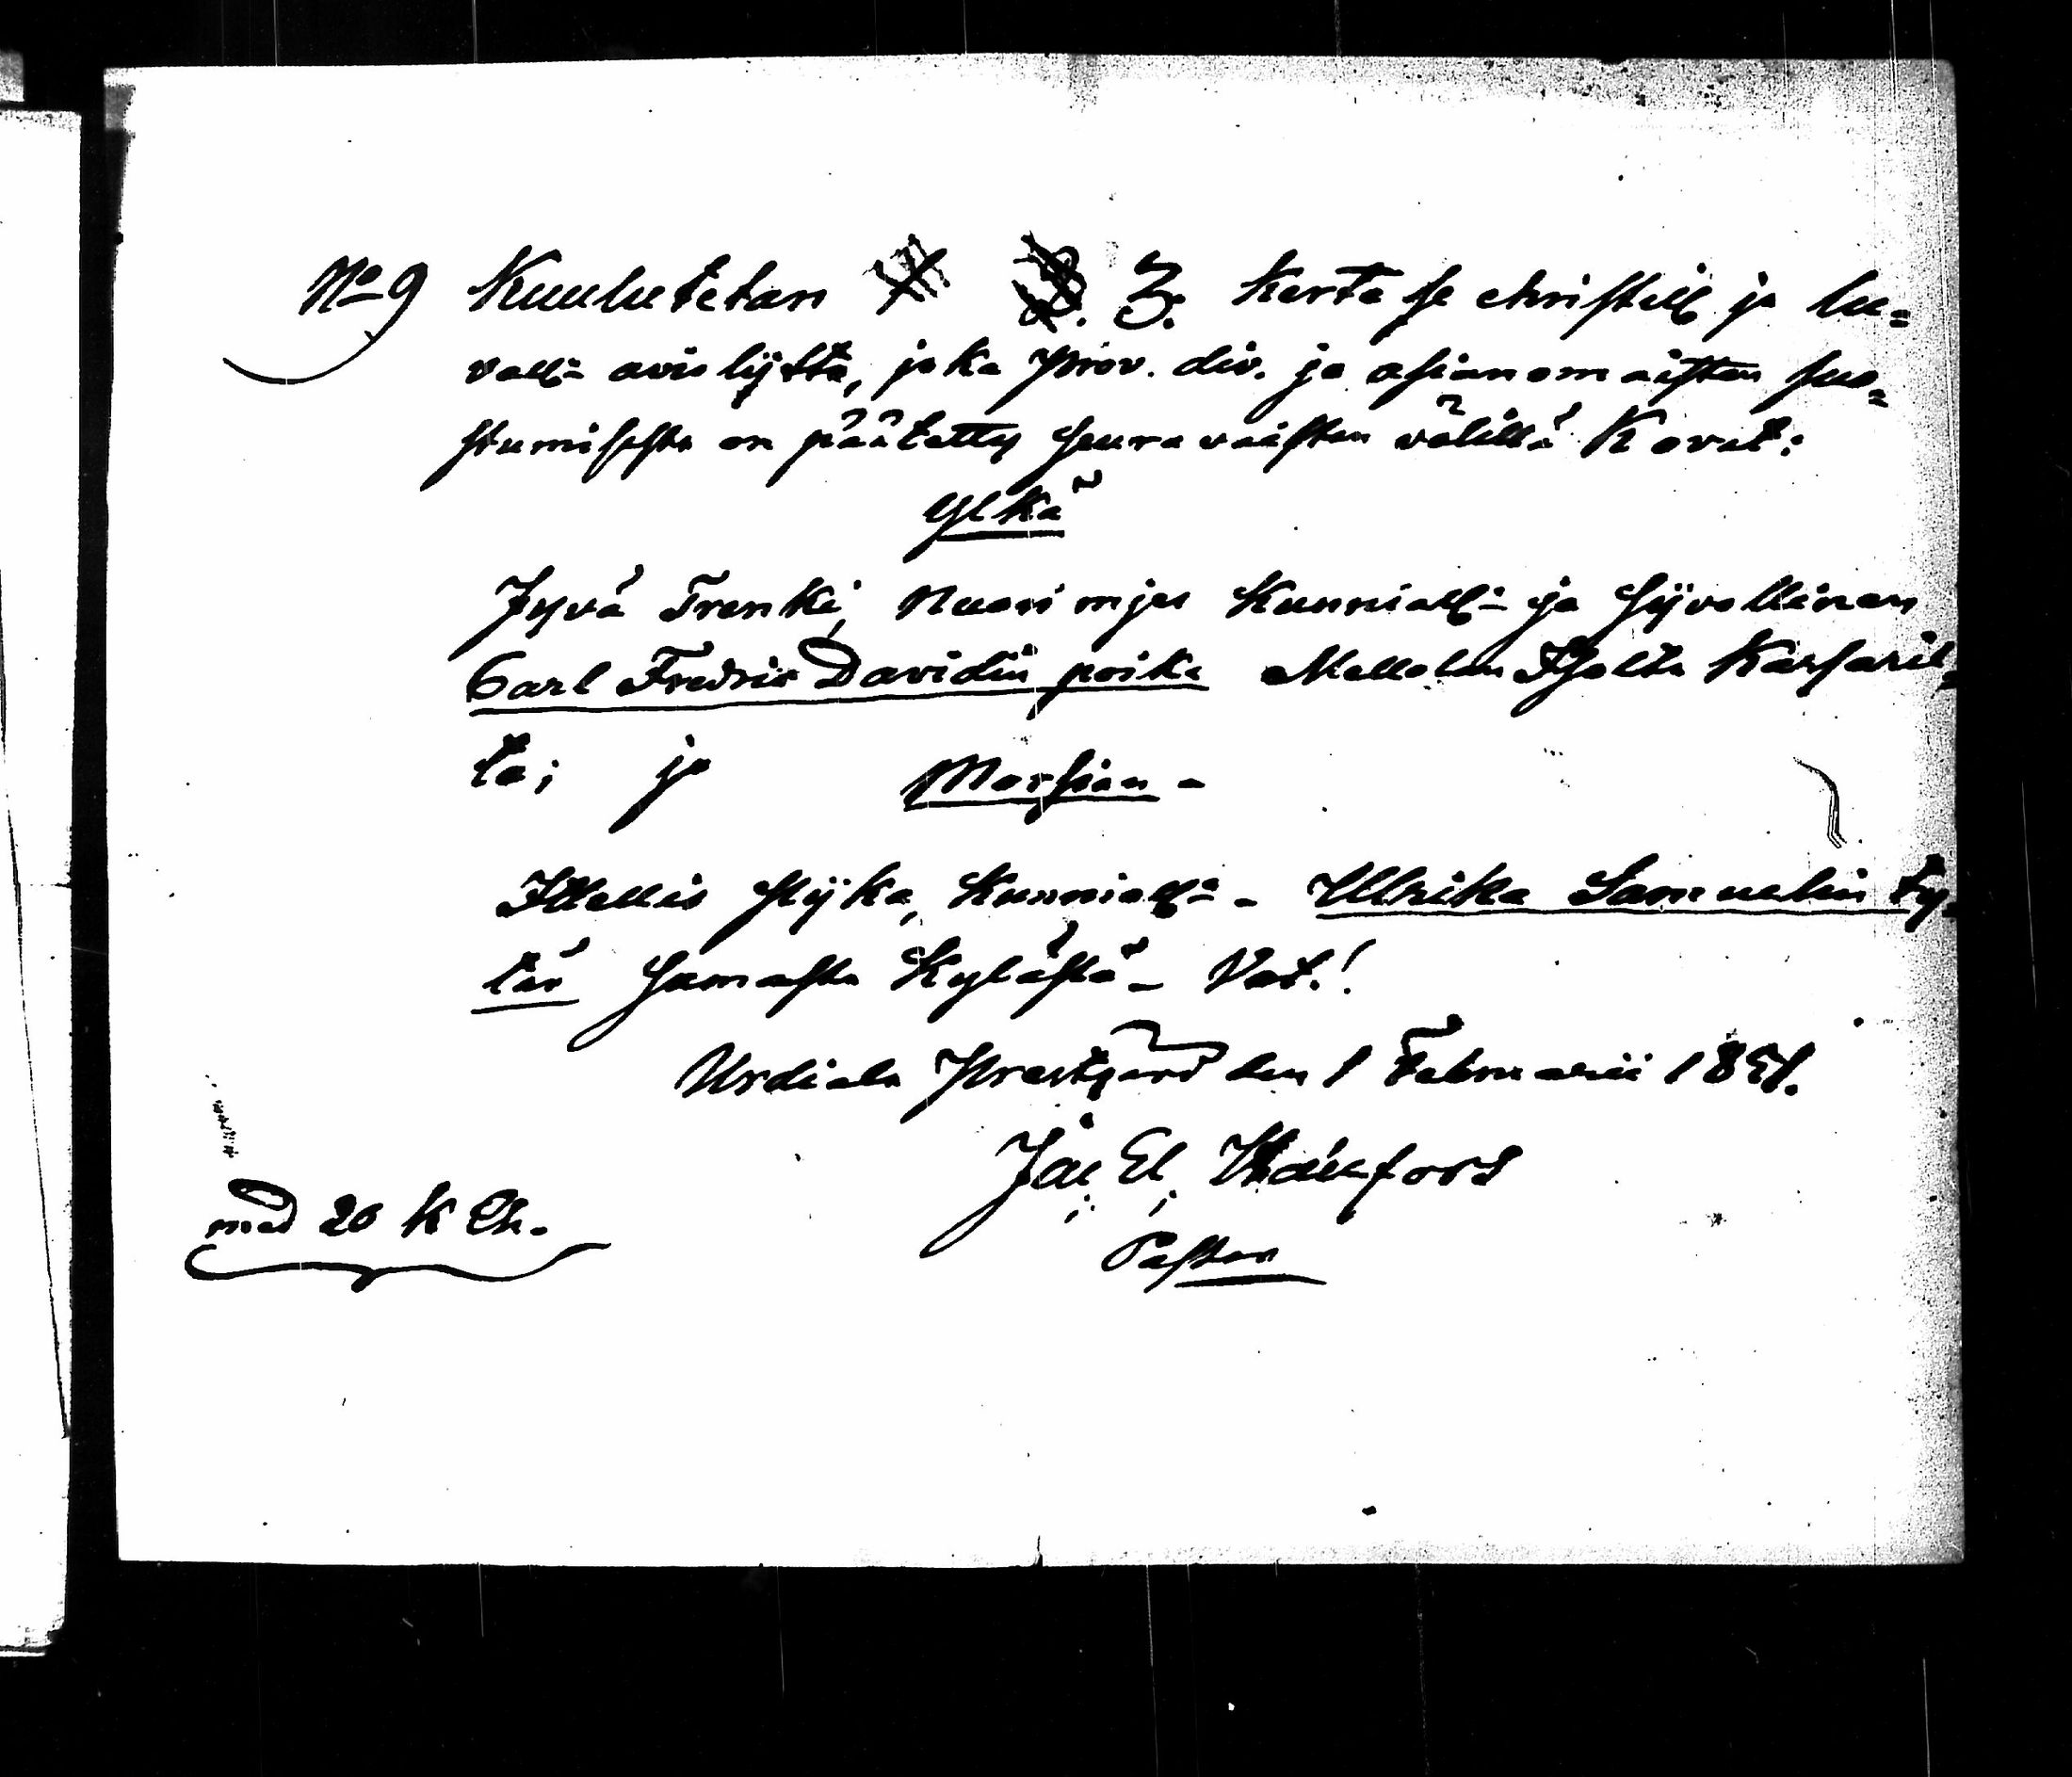 No 9 Kuulutetan 3. kerta se christell ja lu=
vall: avioliytto, joka prov. div. ja asianomaisten suo=
stumisesta on päätetty seuravaisten välillä Kovat:
Ylkä
Jyvä Trenki, Nuori mjes Kunniall: ja siyvollinen
Carl Fredric Davidin poika Mellolan Kär
ta; ja Morsian -
Itellis piyka, Kunniall: - Ulrika Samuelin ty=
tär samasta Kylästä - Vat.!
Urdiala Prestgård den 1 Februarii 1851.
Jac. El.
Pastor
med 20 k